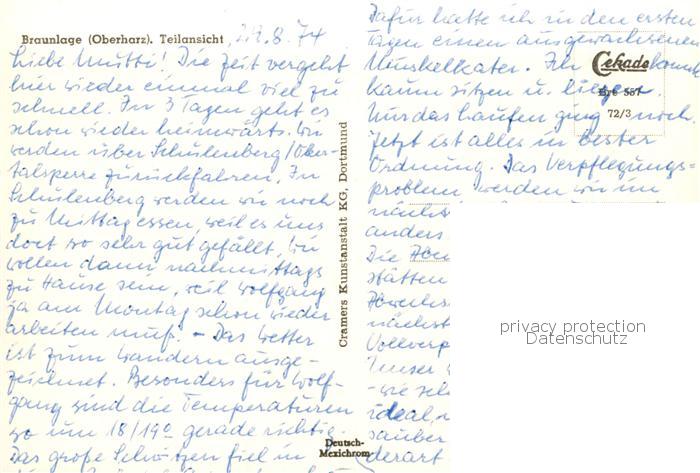 Braunlage (Oberharz). Teilansicht 29.8.74
Liebe Mutti! Die Zeit vergeht
hier wieder einmal viel zu
schnell. In 3 Tagen geht es
schon wieder heimwärts. Wir
werden über Schulenberg/Oker-
talsperre zurückfahren. In
Schulenberg werden wir noch
zu Mittag essen, weil es uns
dort so sehr gut gefällt. Wir
wollen dann nachmittags
zu Hause sein, weil Wolfgang
ja am Montag schon wieder
arbeiten muß. - Das Wetter
ist zum Wandern ausge-
zeichnet. Besonders für Wolf-
gang sind die Temperaturen
so um 18/19° gerade richtig.
Das große Schwitzen fiel in
Cramers Kunstanstalt KG, Dortmund
Deutsch-
Mexichrom
Dafür hatte ich in den ersten
Tagen einen ausgewachsenen
Muskelkater. Ich konnte
kaum sitzen u. liegen.
Nur das Laufen ging noch.
Jetzt ist alles in bester
Ordnung. Das Verpflegungs-
problem werden wir im
nächs
anders
Die
stätten
nächst
Vollverp
Unser
- wie seh
ideal,
sauber
derart
Cekade
Bre 557
72/3
privacy protection
Datenschutz